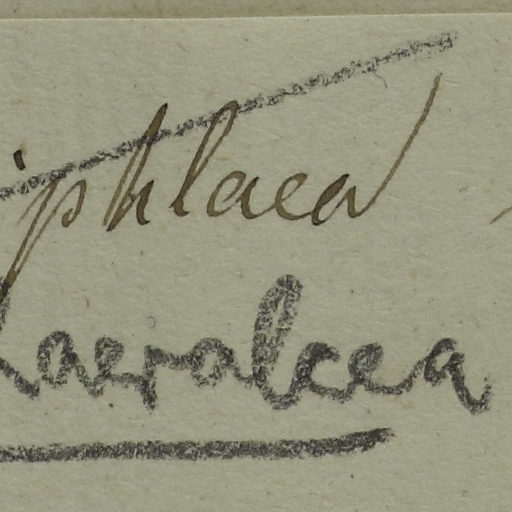 iphlaea
haeralcea